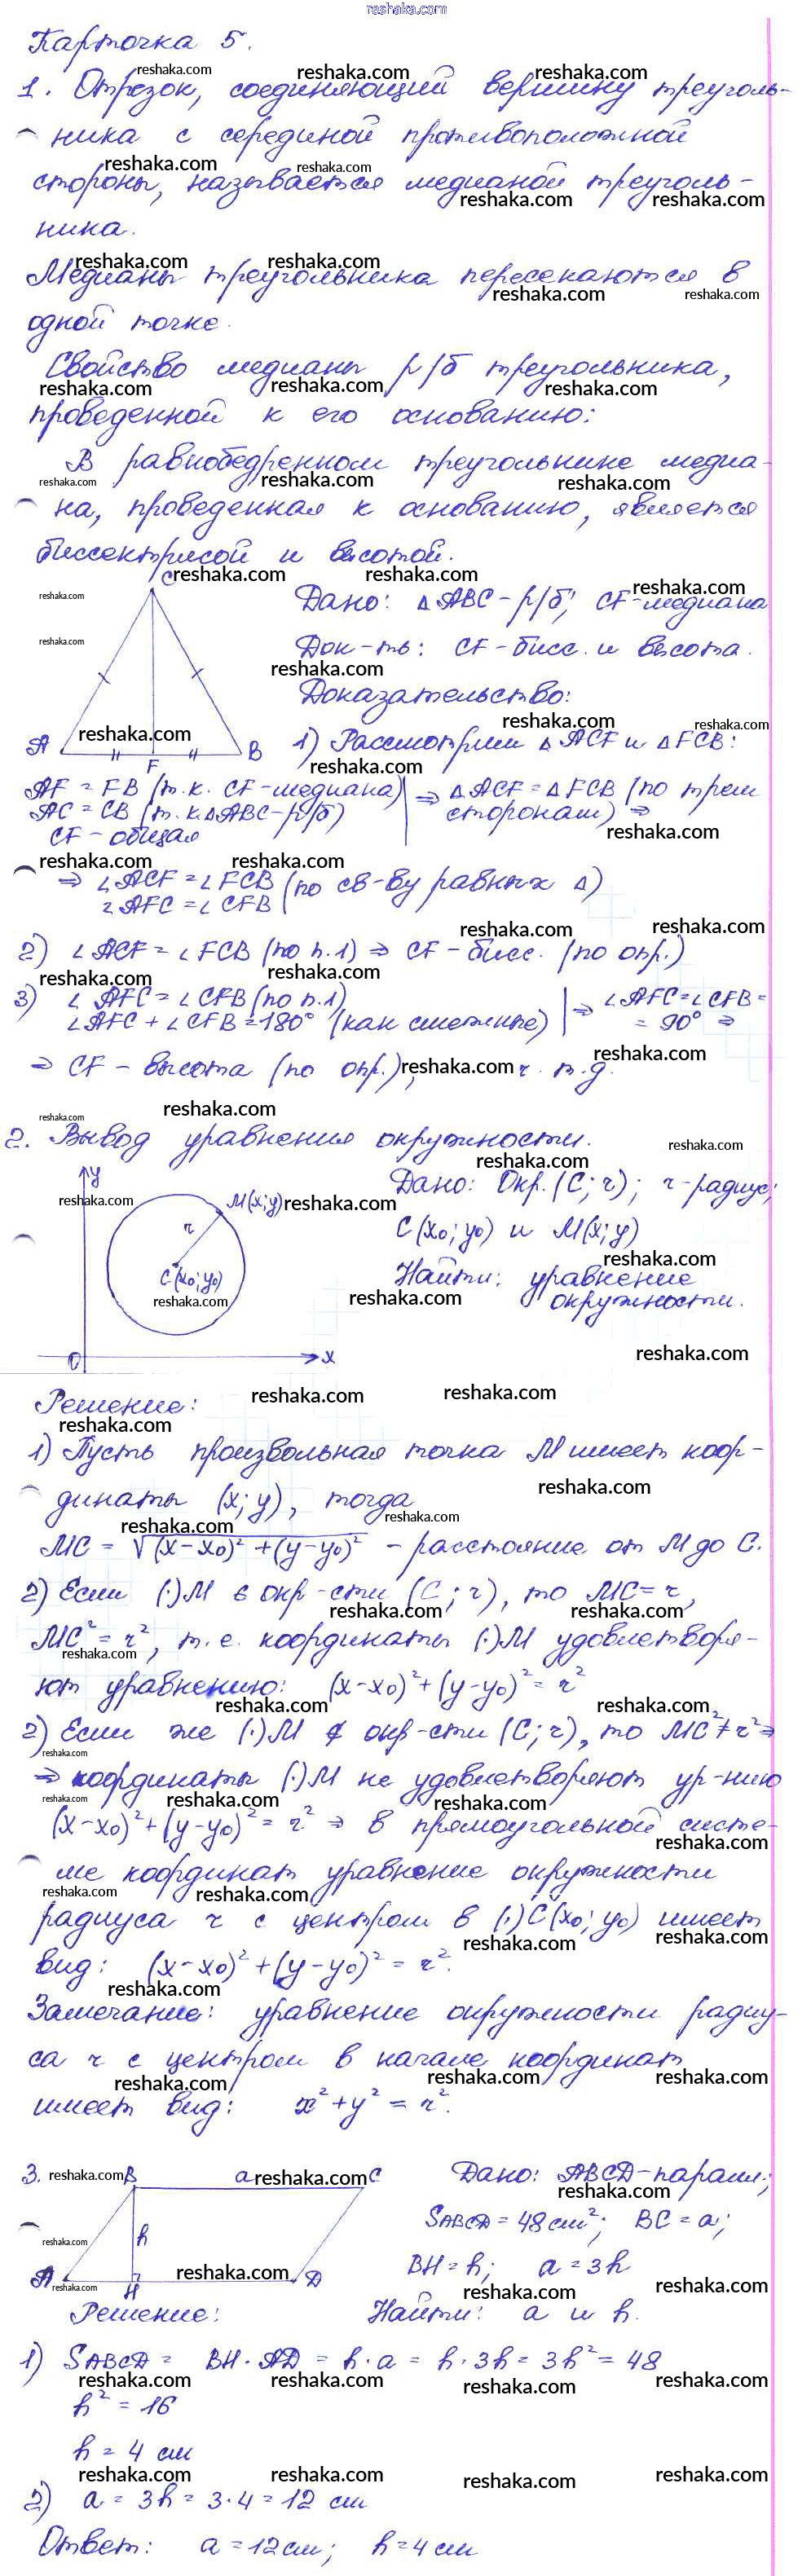 reshaka.com
Карточка 5.
1. Отрезок, соединяющий вершину треуголь-
ника с серединой противоположной
стороны, называется медианой треуголь-
ника.
Медианы треугольника пересекаются в
одной точке.
Свойство медианы р/б треугольника,
проведенной к его основанию:
В равнобедренном треугольнике медиа-
на, проведенная к основанию, является
биссектрисой и высотой.
C
A F B
Дано: △ABC - р/б; CF - медиана
Док-ть: CF - бисс. и высота.
Доказательство:
1) Рассмотрим △ACF и △FCB:
AF = FB (т.к. CF - медиана)
AC = CB (т.к. △ABC - р/б)
CF - общая
⇒ △ACF = △FCB (по трем
сторонам) ⇒
⇒ ∠ACF = ∠FCB (по св-ву равных △)
∠AFC = ∠CFB
2) ∠ACF = ∠FCB (по п.1) ⇒ CF - бисс. (по опр.)
3) ∠AFC = ∠CFB (по п.1)
∠AFC + ∠CFB = 180° (как смежные)
⇒ ∠AFC = ∠CFB =
= 90° ⇒
⇒ CF - высота (по опр.), ч. т. д.
2. Вывод уравнения окружности.
y
M(x; y)
r
C(x₀; y₀)
O x
Дано: Окр. (C; r); r - радиус;
C(x₀; y₀) и M(x; y)
Найти: уравнение
окружности.
Решение:
1) Пусть произвольная точка M имеет коор-
динаты (x; y), тогда
MC = √(x-x₀)² + (y-y₀)² - расстояние от M до C.
2) Если (·)M ∈ окр-сти (C; r), то MC = r,
MC² = r², т.е. координаты (·)M удовлетворя-
ют уравнению: (x-x₀)² + (y-y₀)² = r²
2) Если же (·)M ∉ окр-сти (C; r), то MC² ≠ r² ⇒
⇒ координаты (·)M не удовлетворяют ур-нию
(x-x₀)² + (y-y₀)² = r² ⇒ в прямоугольной систе-
ме координат уравнение окружности
радиуса r с центром в (·)C(x₀; y₀) имеет
вид: (x-x₀)² + (y-y₀)² = r².
Замечание: уравнение окружности радиу-
са r с центром в начале координат
имеет вид: x² + y² = r².
3.
B a C
h
A H D
Дано: ABCD - паралл;
SABCD = 48 см²; BC = a;
BH = h; a = 3h
Найти: a и h.
Решение:
1) SABCD = BH · AD = h · a = h · 3h = 3h² = 48
h² = 16
h = 4 см
2) a = 3h = 3 · 4 = 12 см
Ответ: a = 12 см; h = 4 см